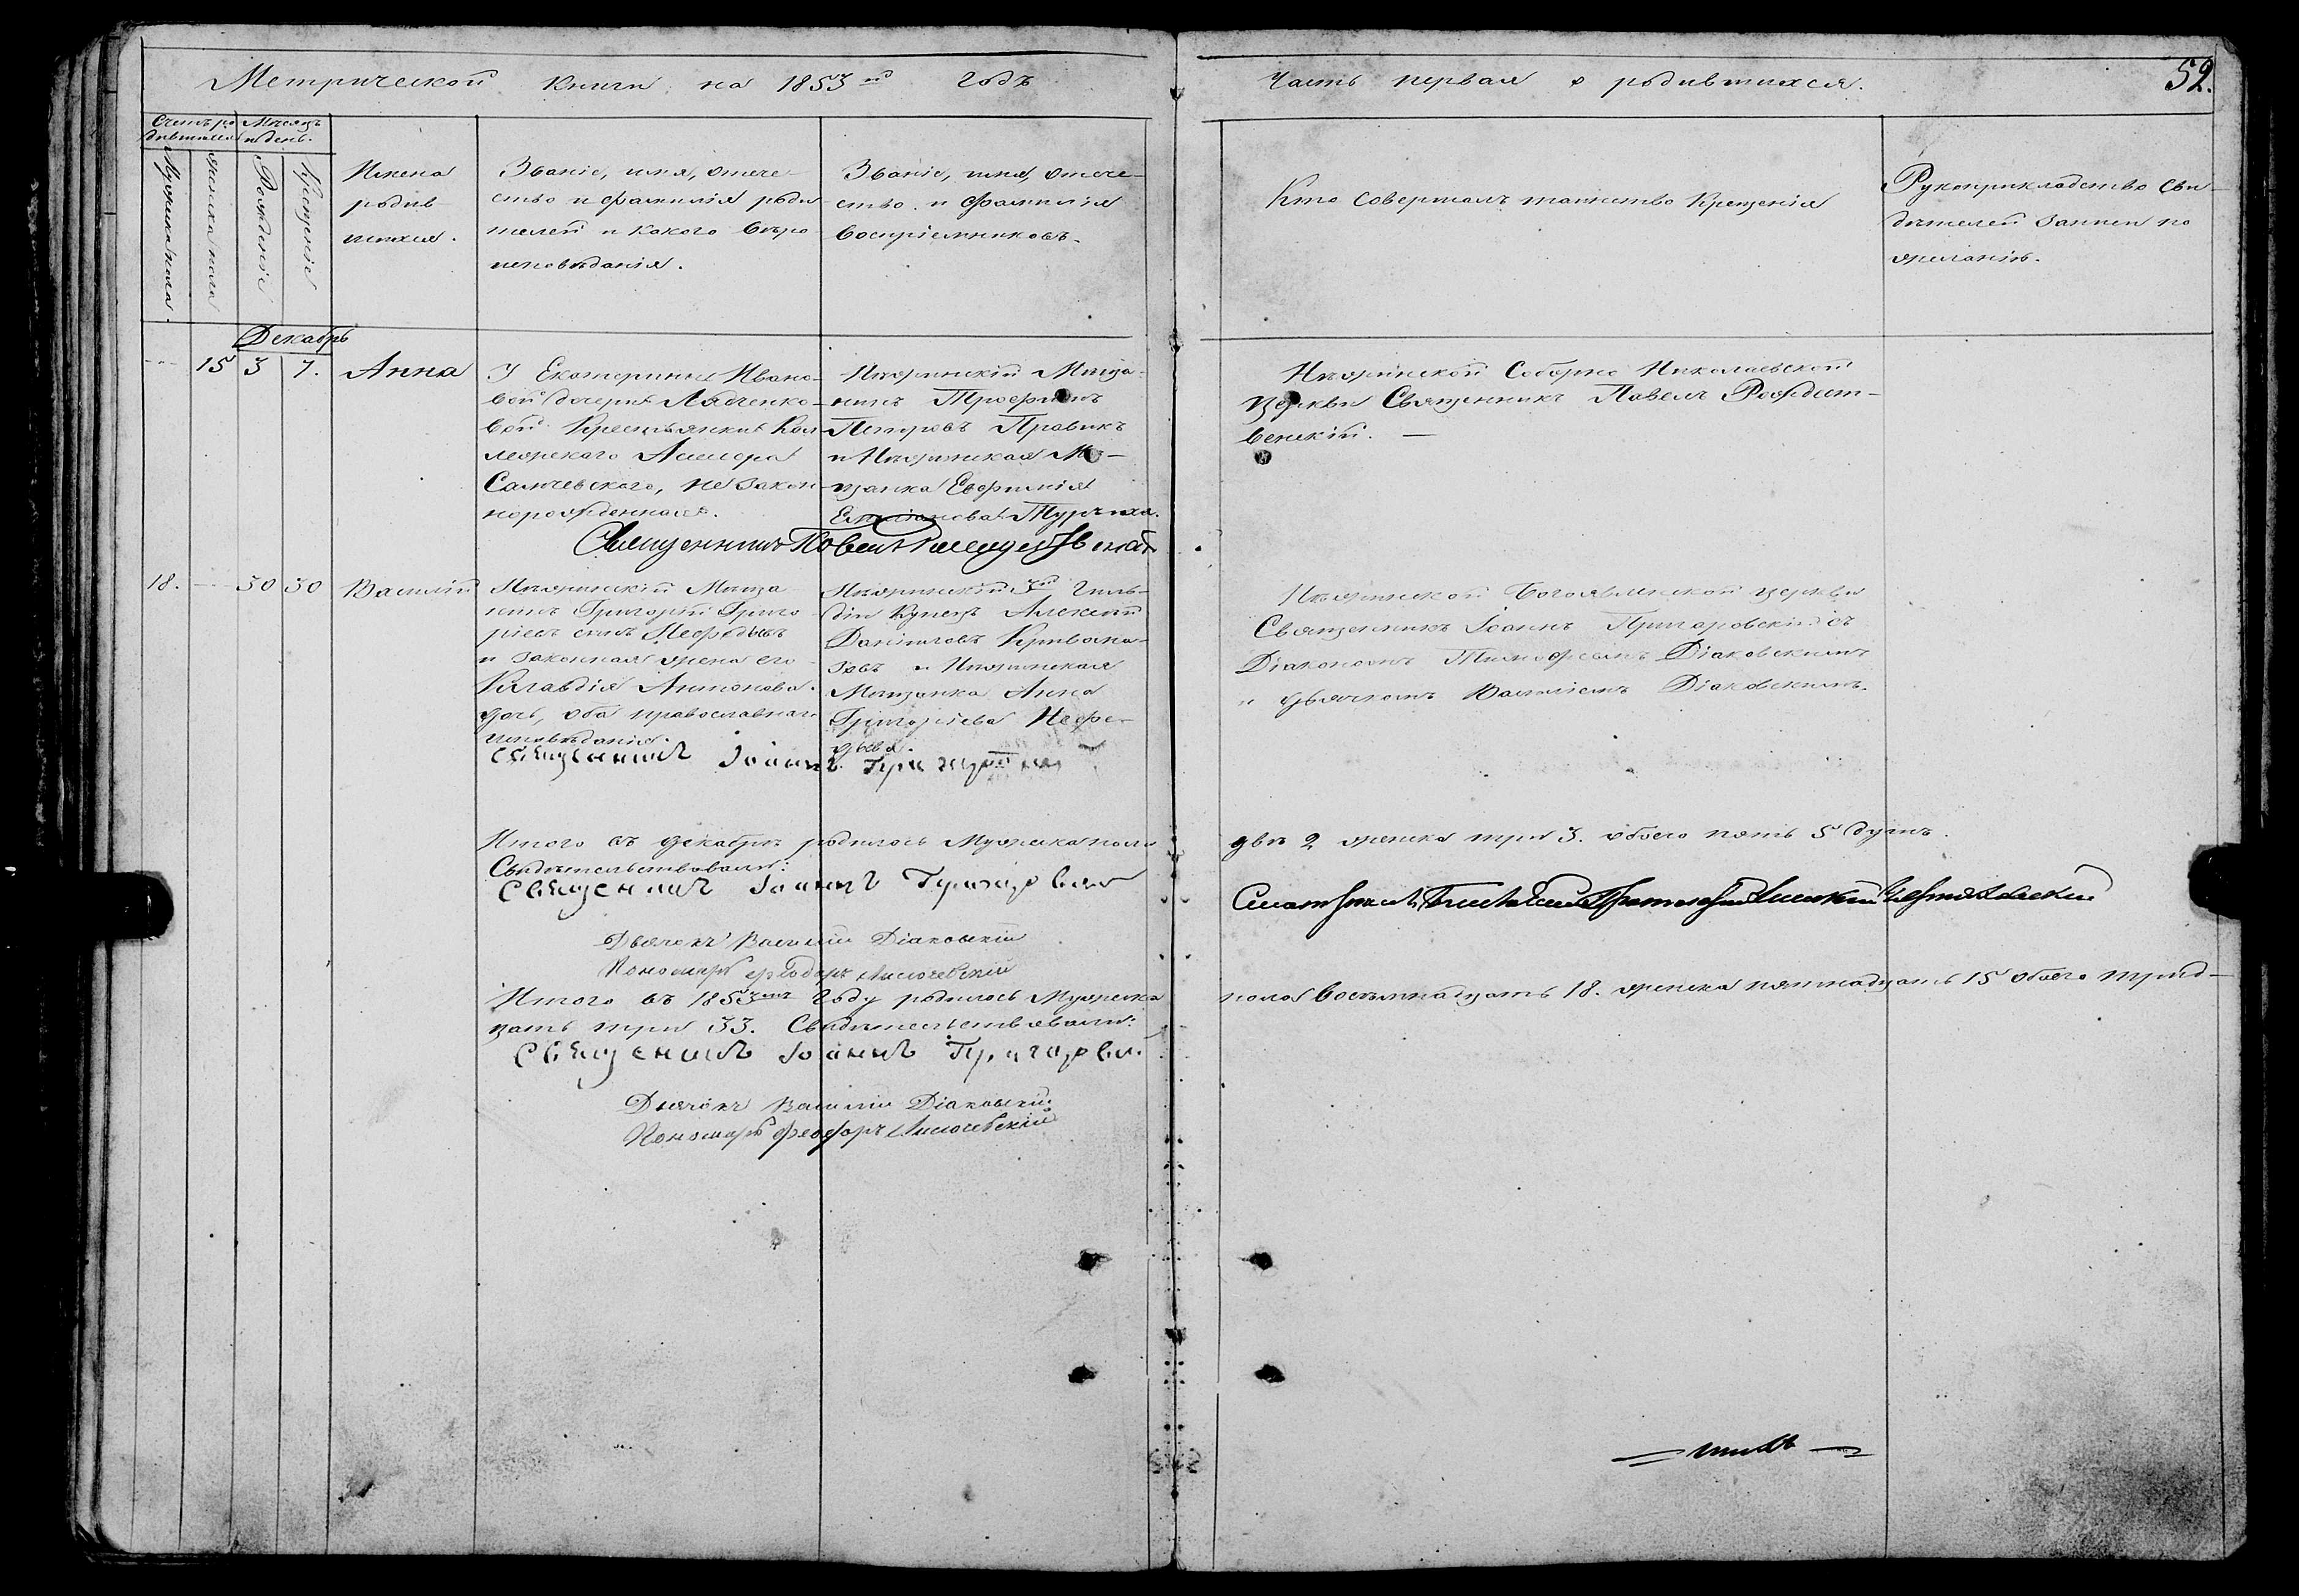 Метрической книги на 1853й годъ
Часть первая о родившихся.
52.
Счетъ ро
дившихся
Мѣсяцъ
и день.
Мужеска пола.
Женска пола
Рожденіе
Крещеніе
Имена
родив
шихся.
Званіе, имя, отече-
ство и фамилія роди
телей и какого вѣро
исповѣданія.
Званіе, имя, отече-
ство и фамилія
воспріемниковъ.
Кто совершалъ таинство крещенія
Рукоприкладство сви-
дѣтелей записи по
желанію.
Декабрь
15 3 7. Анна
У Екатерины Ивано-
вой дочери
вой крестьянки Кол
лежскаго Асесора
не закон
норожденная.
Нѣжинскій Мѣща-
нинъ Трофимъ
Петровъ Правикъ
и Нѣжинская Мѣ-
щанка Евфимія
Емиліанова
Нѣжинской Соборно Николаевской
церкви Священникъ Павелъ Рождест-
венскій. —
Священникъ Павелъ Рождественскій
18. 30 30 Василій
Нѣжинскій Мѣща
нинъ Григорій Григо
ріевъ сынъ Нефедьевъ
и законная жена его
Клавдія Антонова
дочь, оба православнаго
исповѣданія.
Нѣжинскій 3й гиль-
діи купецъ Алексѣй
Даніиловъ Кривоно-
совъ и Нѣжинская
Мѣщанка Анна
Григоріева Нефе-
дьева.
Нѣжинской Богоявленской церкви
Священникъ Іоаннъ Пригоровскій съ
Діакономъ Тимофеемъ Діаковскимъ
и дьячкомъ Василіемъ Діаковскимъ.
Священникъ Іоаннъ
Итого въ декабрѣ родилось Мужеска пола
два 2 женска три 3. обоего пять 5 душъ.
Свидѣтельствовали:
Священникъ Іоаннъ Пригоровскій
Дьячекъ Василій Діаковскій
Пономарь Феодоръ
Итого въ 1853мъ году родилось Мужеска
пола восемнадцать 18. женска пятнадцать 15 обоего трид-
цать три 33. Свидѣтельствовали:
Священникъ Іоаннъ Пригоровскій
Дьячекъ Василій Діаковскій
Пономарь Феодоръ